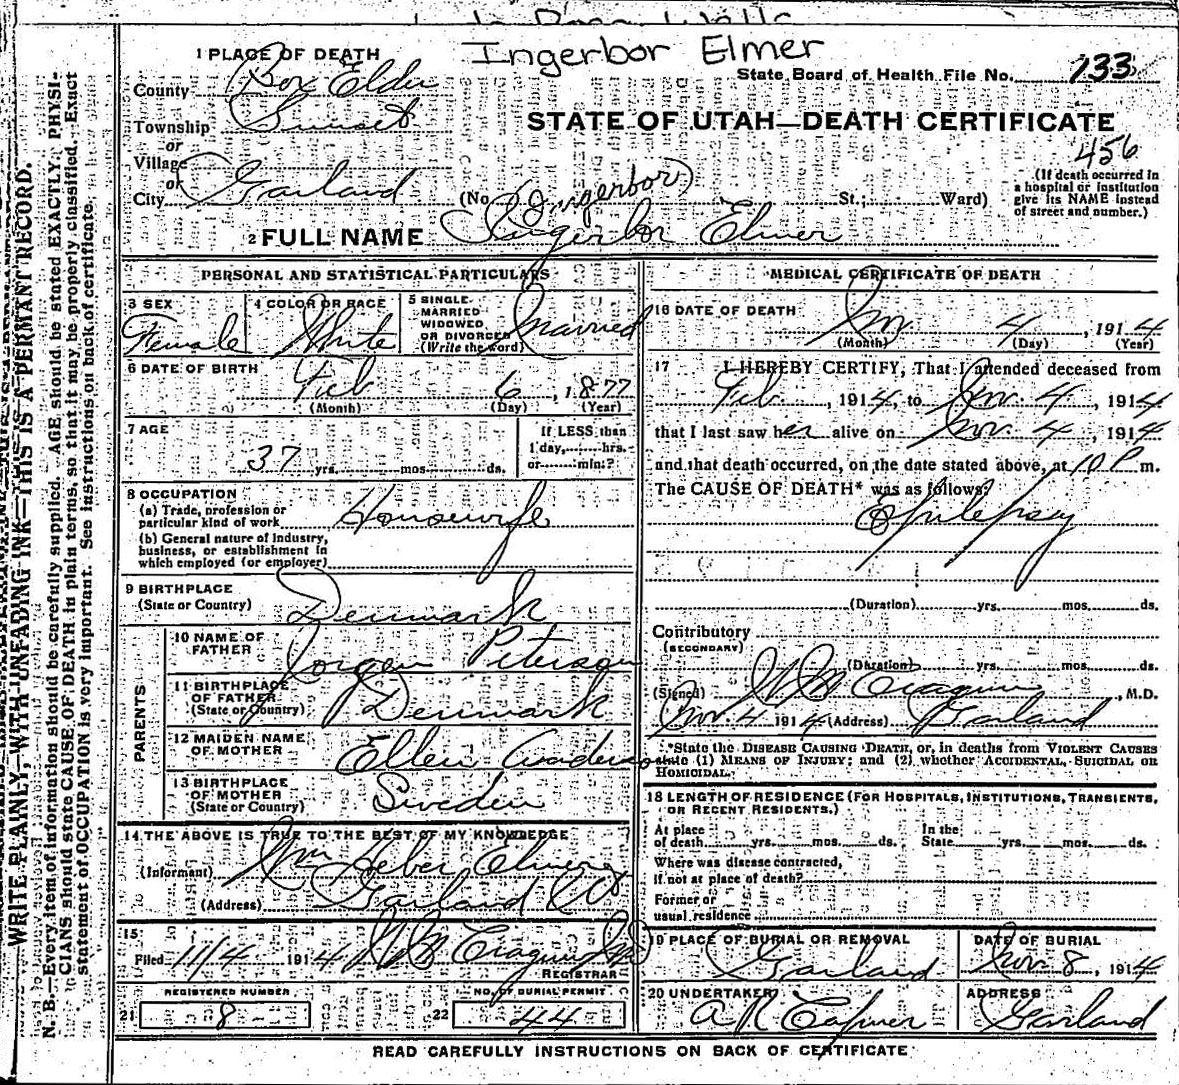 Ingerbor Elmer
1 PLACE OF DEATH
State Board of Health File No. 133
County Box Elder
STATE OF UTAH—DEATH CERTIFICATE
456
Township Sunset
or
Village
or
City Garland
(No. St.; Ward)
(Ingerbor)
(If death occurred in
a hospital or institution
give its NAME instead
of street and number.)
2 FULL NAME Ingerbor Elmer
PERSONAL AND STATISTICAL PARTICULARS
3 SEX
Female
4 COLOR OR RACE
White
5 SINGLE
MARRIED
WIDOWED
OR DIVORCED
(Write the word)
Married
6 DATE OF BIRTH
Feb 6, 1877
(Month) (Day) (Year)
7 AGE
37 yrs. mos. ds.
If LESS than
1 day, hrs.
or min.?
8 OCCUPATION
(a) Trade, profession or
particular kind of work Housewife
(b) General nature of industry,
business, or establishment in
which employed (or employer)
9 BIRTHPLACE
(State or Country) Denmark
PARENTS
10 NAME OF
FATHER Jorgen Peterson
11 BIRTHPLACE
OF FATHER
(State or Country) Denmark
12 MAIDEN NAME
OF MOTHER Ellen Anderson
13 BIRTHPLACE
OF MOTHER
(State or Country) Sweden
14 THE ABOVE IS TRUE TO THE BEST OF MY KNOWLEDGE
(Informant) Wm Heber Elmer
(Address) Garland Ut
15
Filed 11/4 1914 Cragun
REGISTRAR
REGISTERED NUMBER
21 8
NO. OF BURIAL PERMIT
22 44
MEDICAL CERTIFICATE OF DEATH
16 DATE OF DEATH
Nov. 4, 1914
(Month) (Day) (Year)
17 I HEREBY CERTIFY, That I attended deceased from
Feb, 1914, to Nov. 4, 1914
that I last saw her alive on Nov. 4, 1914
and that death occurred, on the date stated above, at 10 P m.
The CAUSE OF DEATH* was as follows:
Epilepsy
(Duration) yrs. mos. ds.
Contributory
(SECONDARY)
(Duration) yrs. mos. ds.
(Signed) Cragun, M.D.
Nov. 4 1914 (Address) Garland
*State the DISEASE CAUSING DEATH, or, in deaths from VIOLENT CAUSES
state (1) MEANS OF INJURY; and (2) whether ACCIDENTAL, SUICIDAL OR
HOMICIDAL.
18 LENGTH OF RESIDENCE (FOR HOSPITALS, INSTITUTIONS, TRANSIENTS,
OR RECENT RESIDENTS.)
At place
of death yrs. mos. ds.
In the
State yrs. mos. ds.
Where was disease contracted,
if not at place of death?
Former or
usual residence
19 PLACE OF BURIAL OR REMOVAL
Garland
DATE OF BURIAL
Nov. 8, 1914
20 UNDERTAKER
A R
ADDRESS
Garland
READ CAREFULLY INSTRUCTIONS ON BACK OF CERTIFICATE
WRITE PLAINLY, WITH UNFADING INK—THIS IS A PERMANT RECORD.
N. B.—Every item of information should be carefully supplied. AGE should be stated EXACTLY. PHYSI-
CIANS should state CAUSE OF DEATH in plain terms, so that it may be properly classified. Exact
statement of OCCUPATION is very important. See instructions on back of certificate.